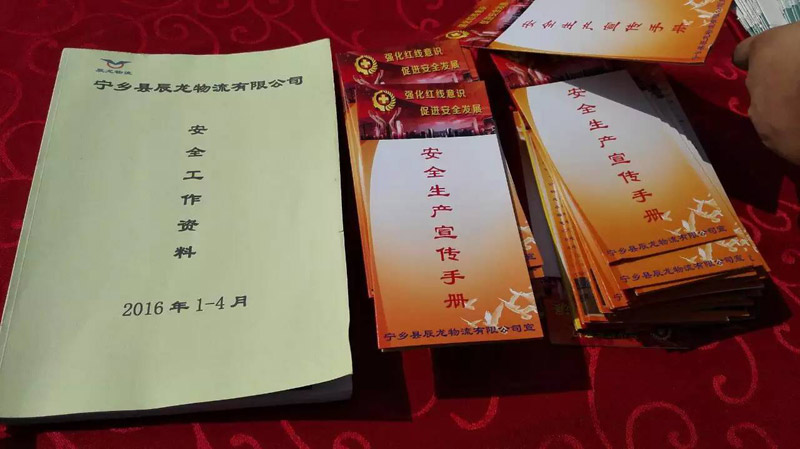 辰龙物流
宁乡县辰龙物流有限公司
安全工作资料
2016年1-4月
强化红线意识
促进安全发展
强化红线意识
促进安全发展
安全生产宣传手册
宁乡县辰龙物流有限公司宣
安全生产宣传手册
安全生产宣传手册
宁乡县辰龙物流有限公司宣
宁乡县辰龙物流有限公司宣